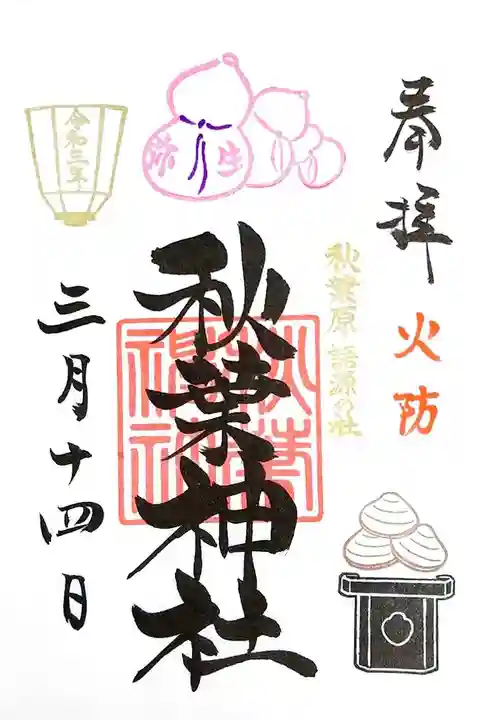 奉拝
火防
秋葉原 語源の社
弥生
秋葉神社
秋葉神社
令和三年
三月十四日